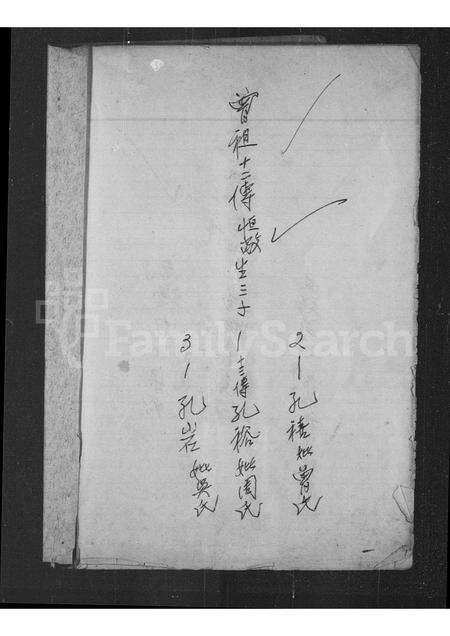 曾祖十二傳恒敬生三子
2 | 孔禧妣曾氏
1 | 十三傳孔裕妣周氏
3 | 孔岩妣吳氏
FamilySearch